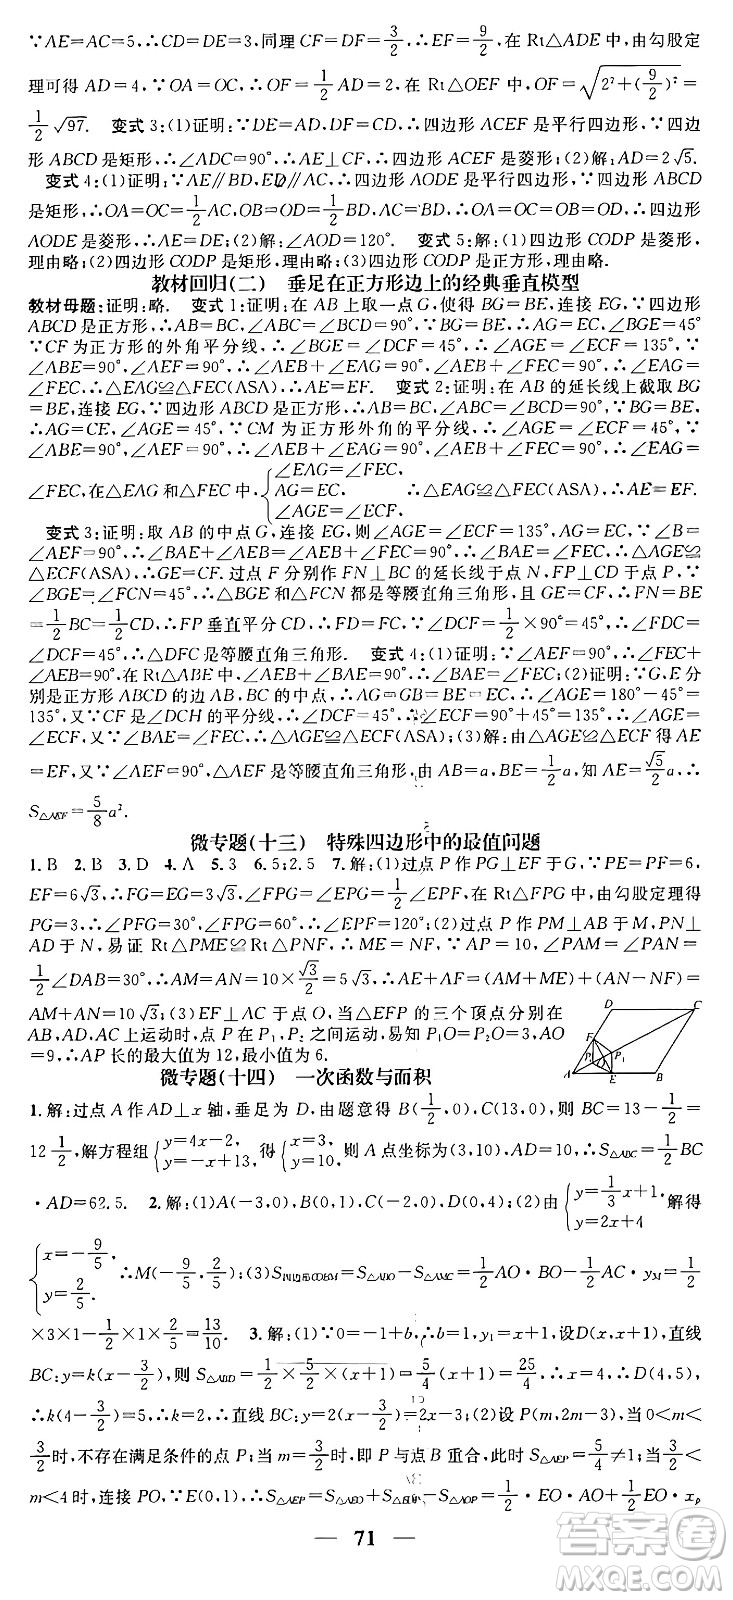 ∵AE=AC=5,∴CD=DE=3,同理 CF=DF=3/2,∴EF=9/2,在 Rt△ADE 中,由勾股定
理可得 AD=4,∵OA=OC,∴OF=1/2AD=2,在 Rt△OEF 中,OF=√(2²+(9/2)²)=
1/2√97. 变式 3:(1)证明:∵DE=AD,DF=CD,∴四边形 ACEF 是平行四边形,∵四边
形 ABCD 是矩形,∴∠ADC=90°,∴AE⊥CF,∴四边形 ACEF 是菱形;(2)解:AD=2√5.
变式 4:(1)证明:∵AE∥BD,ED∥AC,∴四边形 AODE 是平行四边形,∵四边形 ABCD
是矩形,∴OA=OC=1/2AC,OB=OD=1/2BD,AC=BD,∴OA=OC=OB=OD,∴四边形
AODE 是菱形,∴AE=DE;(2)解:∠AOD=120°. 变式 5:(1)解:四边形 CODP 是菱形,
理由略;(2)四边形 CODP 是矩形,理由略;(3)四边形 CODP 是正方形,理由略.
教材回归(二) 垂足在正方形边上的经典垂直模型
教材母题:证明:略. 变式 1:证明:在 AB 上取一点 G,使得 BG=BE,连接 EG,∵四边形
ABCD 是正方形,∴∠B=∠BCD=∠DCP=90°,∵BG=BE,∴∠BGE=∠BEG=45°
∵CF 为正方形的外角平分线,∴∠BGE=∠DCF=45°,∴∠AGE=∠FCE=135°,∵
∠ABE=90°,∴∠BAE+∠AEB=90°,∵∠AEF=90°,∴∠AEB+∠FEC=90°,∴∠BAE
=∠FEC,∴△EAG≌△FEC(ASA),∴AE=EF. 变式 2:证明:在 AB 的延长线上截取 BG
=BE,连接 EG,∵四边形 ABCD 是正方形,∴AB=BC,∠ABC=∠BCD=90°,∵BG=BE,
∴AG=CE,∠AGE=45°,∵CM 为正方形外角的平分线,∴∠ECF=45°,∴∠AGE=
∠ECF,∵∠ABE=90°,∠AEF=90°,∴∠AEB+∠BAE=90°,∠AEB+∠FEC=90°,∴∠EAG=
∠FEC,在△EAG 和△FEC 中,{∠EAG=∠FEC, AG=EC, ∠AGE=∠ECF, ∴△EAG≌△FEC(ASA),∴AE=EF.
变式 3:证明:取 AB 的中点 G,连接 EG,则∠AGE=∠ECF=135°,又∵∠B=
∠AEF=90°,∴∠BAE+∠AEB=∠AEB+∠FEC=90°,∴∠BAE=∠FEC,∴△AGE≌
△ECF(ASA),∴GE=CF. 过点 F 分别作 FN⊥BC 的延长线于点 N,FP⊥CD 于点 P,∵
∠BGE=∠FCN=45°,∴△BGE 和△FCN 都是等腰直角三角形,且 GE=CF,∴FN=BE
=1/2BC=1/2CD,∴FP 垂直平分 CD,∴FD=FC,∵∠DCF=1/2×90°=45°,∴∠FDC=
∠DCF=45°,∴△DFC 是等腰直角三角形. 变式 4:(1)证明:∵∠AEF=90°,∴∠FEC+
∠AEB=90°,在 Rt△ABE 中,∠AEB+∠BAE=90°,∴∠BAE=∠FEC;(2)证明:∵G、E 分
别是正方形 ABCD 的边 AB、BC 的中点,∴AG=GB=BE=EC,且∠AGE=180°-45°=
135°,又∵CF 是∠DCH 的平分线,∴∠DCF=45°,∠ECF=90°+45°=135°,∴∠AGE=
∠ECF,又∵∠BAE=∠FEC,∴△AGE≌△ECF(ASA);(3)解:由△AGE≌△ECF 得 AE
=EF,又∵∠AEF=90°,∴△AEF 是等腰直角三角形,由 AB=a,BE=1/2a,知 AE=√5/2a,∴
S△AEF=5/8a².
微专题(十三) 特殊四边形中的最值问题
1. B 2. B 3. D 4. A 5. 3 6. 5;2.5 7. 解:(1)过点 P 作 PG⊥EF 于点 G,∵PE=PF=6,
EF=6√3,∴FG=EG=3√3,∠FPG=∠EPG=1/2∠EPF,在 Rt△FPG 中,由勾股定理得
PG=3,∴∠PFG=30°,∴∠FPG=60°,∴∠EPF=120°;(2)过点 P 作 PM⊥AB 于 M,PN⊥
AD 于 N,易证 Rt△PME≌Rt△PNF,∴ME=NF,∵AP=10,∠PAM=∠PAN=
1/2∠DAB=30°,∴AM=AN=10×√3/2=5√3,∴AE+AF=(AM+ME)+(AN-NF)=
AM+AN=10√3;(3)EF⊥AC 于点 O,当△EFP 的三个顶点分别在
AB、AD、AC 上运动时,点 P 在 P₁、P₂ 之间运动,易知 P₁O=P₂O=3,AO
=9,∴AP 长的最大值为 12,最小值为 6.
D C F P P₁ A E B
微专题(十四) 一次函数与面积
1. 解:过点 A 作 AD⊥x 轴,垂足为 D,由题意得 B(1/2,0),C(13,0),则 BC=13-1/2=
12 1/2,解方程组{y=4x-2, y=-x+13, 得{x=3, y=10, 则 A 点坐标为(3,10),AD=10,∴S△ABC=1/2BC
·AD=62.5. 2. 解:(1)A(-3,0),B(0,1),C(-2,0),D(0,4);(2)由{y=1/3x+1, y=2x+4 解得
{x=-9/5, y=2/5. ∴M(-9/5,2/5);(3)S四边形COBM=S△ABO-S△AMC=1/2AO·BO-1/2AC·yM=1/2
×3×1-1/2×1×2/5=13/10. 3. 解:(1)∵0=-1+b,∴b=1,∴y₁=x+1,设D(x,x+1),直线
BC:y=k(x-3/2),则 S△ABD=1/2×5/2×(x+1)=5/4(x+1)=25/4,∴x+1=5,x=4,∴D(4,5),
∴k(4-3/2)=5,∴k=2,∴直线 BC:y=2(x-3/2)=2x-3;(2)设 P(m,2m-3),当 0<m<
3/2时,不存在满足条件的点 P;当 m=3/2时,即 P 与点 B 重合,此时 S△AEP=5/4≠1;当3/2<
m<4 时,连接 PO,∵E(0,1),∴S△AEP=S△AEO+S△EOP-S△AOP=1/2·EO·AO+1/2·EO·xP
71